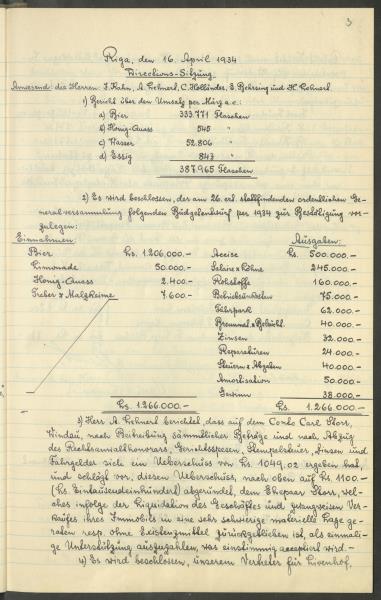 3
Riga, den 16. April 1934
Directions-Sitzung.
Anwesend: die Herren: J. Kahn, A. Lehnerl, C. Holländer, E. Behsing und H. Lehnerl.
1) Bericht über den Umsatz per März a.c.:
a) Bier 333.771 Flaschen
b) Honig-Quass 545 "
c) Wasser 52.806 "
d) Essig 843 "
387.965 Flaschen
2) Es wird beschlossen, der am 26. erl. stattfindenden ordentlichen Ge-
neralversammlung folgenden Budgetentwurf per 1934 zur Bestätigung vor-
zulegen:
Einnahmen: Ausgaben:
Bier Ls. 1.206.000.– Accise Ls. 500.000.–
Limonade 50.000.– Salaire & Löhne 245.000.–
Honig-Quass 2.400.– Rohstoffe 160.000.–
Treber & Malzkeime 7.600.– Betriebsunkosten 75.000.–
Fuhrpark 62.000.–
Brennmat. & Beleucht. 40.000.–
Zinsen 32.000.–
Reparaturen 24.000.–
Steuern & Abgaben 40.000.–
Amortisation 50.000.–
Gewinn 38.000.–
Ls. 1.266.000.– Ls. 1.266.000.–
3) Herr A. Lehnerl berichtet, dass auf dem Conto Carl Storr,
Windau, nach Beitreibung sämmtlicher Beträge und nach Abzug
des Rechtsanwalthonorars, Gerichtsspesen, Stempelsteuer, Zinsen und
Fahrgelder sich ein Ueberschuss von Ls. 1049,02 ergeben hat,
und schlägt vor, diesen Ueberschuss, nach oben auf Ls. 1100.–
(Ls. Eintausendeinhundert) abgerundet, dem Ehepaar Storr, wel-
ches infolge der Liquidation des Geschäftes und zwangsweisen Ver-
kaufes ihres Immobils in eine sehr schwierige materielle Lage ge-
raten resp. ohne Existenzmittel zurückgeblieben ist, als einmali-
ge Unterstützung auszuzahlen, was einstimmig acceptiert wird.–
4) Es wird beschlossen, unserem Vertreter für Livenhof,